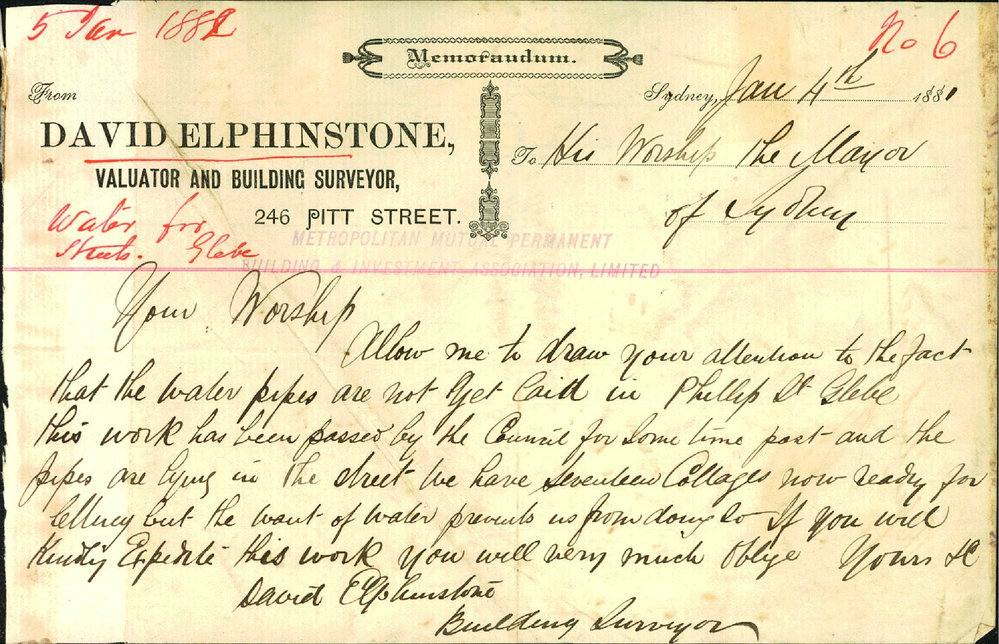 5 Jan 1882
No 6
Memorandum.
From
Sydney, Jan 4th 1881
DAVID ELPHINSTONE,
VALUATOR AND BUILDING SURVEYOR,
246 PITT STREET.
To His Worship the Mayor
of Sydney
Water for
Streets. Glebe
METROPOLITAN MUTUAL PERMANENT
BUILDING & INVESTMENT ASSOCIATION, LIMITED
Your Worship
Allow me to draw your attention to the fact
that the water pipes are not yet laid in Phillip St Glebe
this work has been passed by the Council for some time past and the
pipes are lying in the street We have seventeen Cottages now ready for
letting but the want of water prevents us from doing so If you will
Kindly Expedite this work you will very much oblige Yours &c
David Elphinstone
Building Surveyor